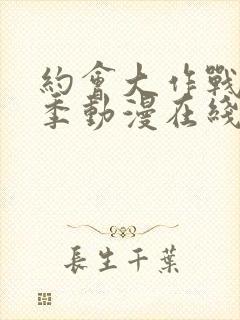 約會大作戰
季動漫在綫
長生千葉